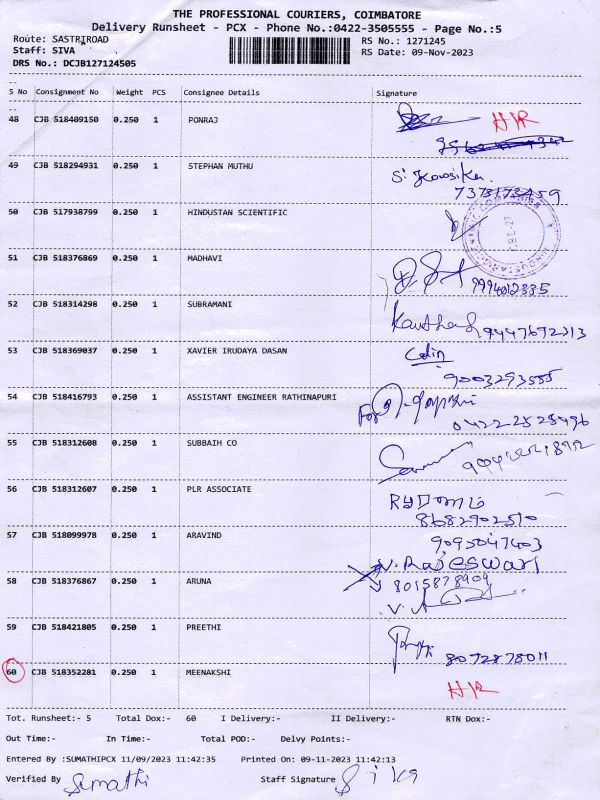 THE PROFESSIONAL COURIERS, COIMBATORE
Delivery Runsheet - PCX - Phone No.:0422-3505555 - Page No.:5
Route: SASTRIROAD RS No.: 1271245
Staff: SIVA RS Date: 09-Nov-2023
DRS No.: DCJB127124505
S No Consignment No Weight PCS Consignee Details Signature
48 CJB 518409150 0.250 1 PONRAJ
49 CJB 518294931 0.250 1 STEPHAN MUTHU
50 CJB 517938799 0.250 1 HINDUSTAN SCIENTIFIC
51 CJB 518376869 0.250 1 MADHAVI
52 CJB 518314298 0.250 1 SUBRAMANI
53 CJB 518369037 0.250 1 XAVIER IRUDAYA DASAN
9003293555
54 CJB 518416793 0.250 1 ASSISTANT ENGINEER RATHINAPURI
For
0422 2525496
55 CJB 518312608 0.250 1 SUBBAIH CO
56 CJB 518312607 0.250 1 PLR ASSOCIATE
8682902510
57 CJB 518099978 0.250 1 ARAVIND
9095047403
V. Rajeswari
58 CJB 518376867 0.250 1 ARUNA
8015878909
59 CJB 518421805 0.250 1 PREETHI
8072878011
60 CJB 518352281 0.250 1 MEENAKSHI
Tot. Runsheet:- 5 Total Dox:- 60 I Delivery:- II Delivery:- RTN Dox:-
Out Time:- In Time:- Total POD:- Delvy Points:-
Entered :SUMATHIPCX 11/09/2023 11:42:35 Printed On: 09-11-2023 11:42:13
Verified By Sumathi Staff Signature